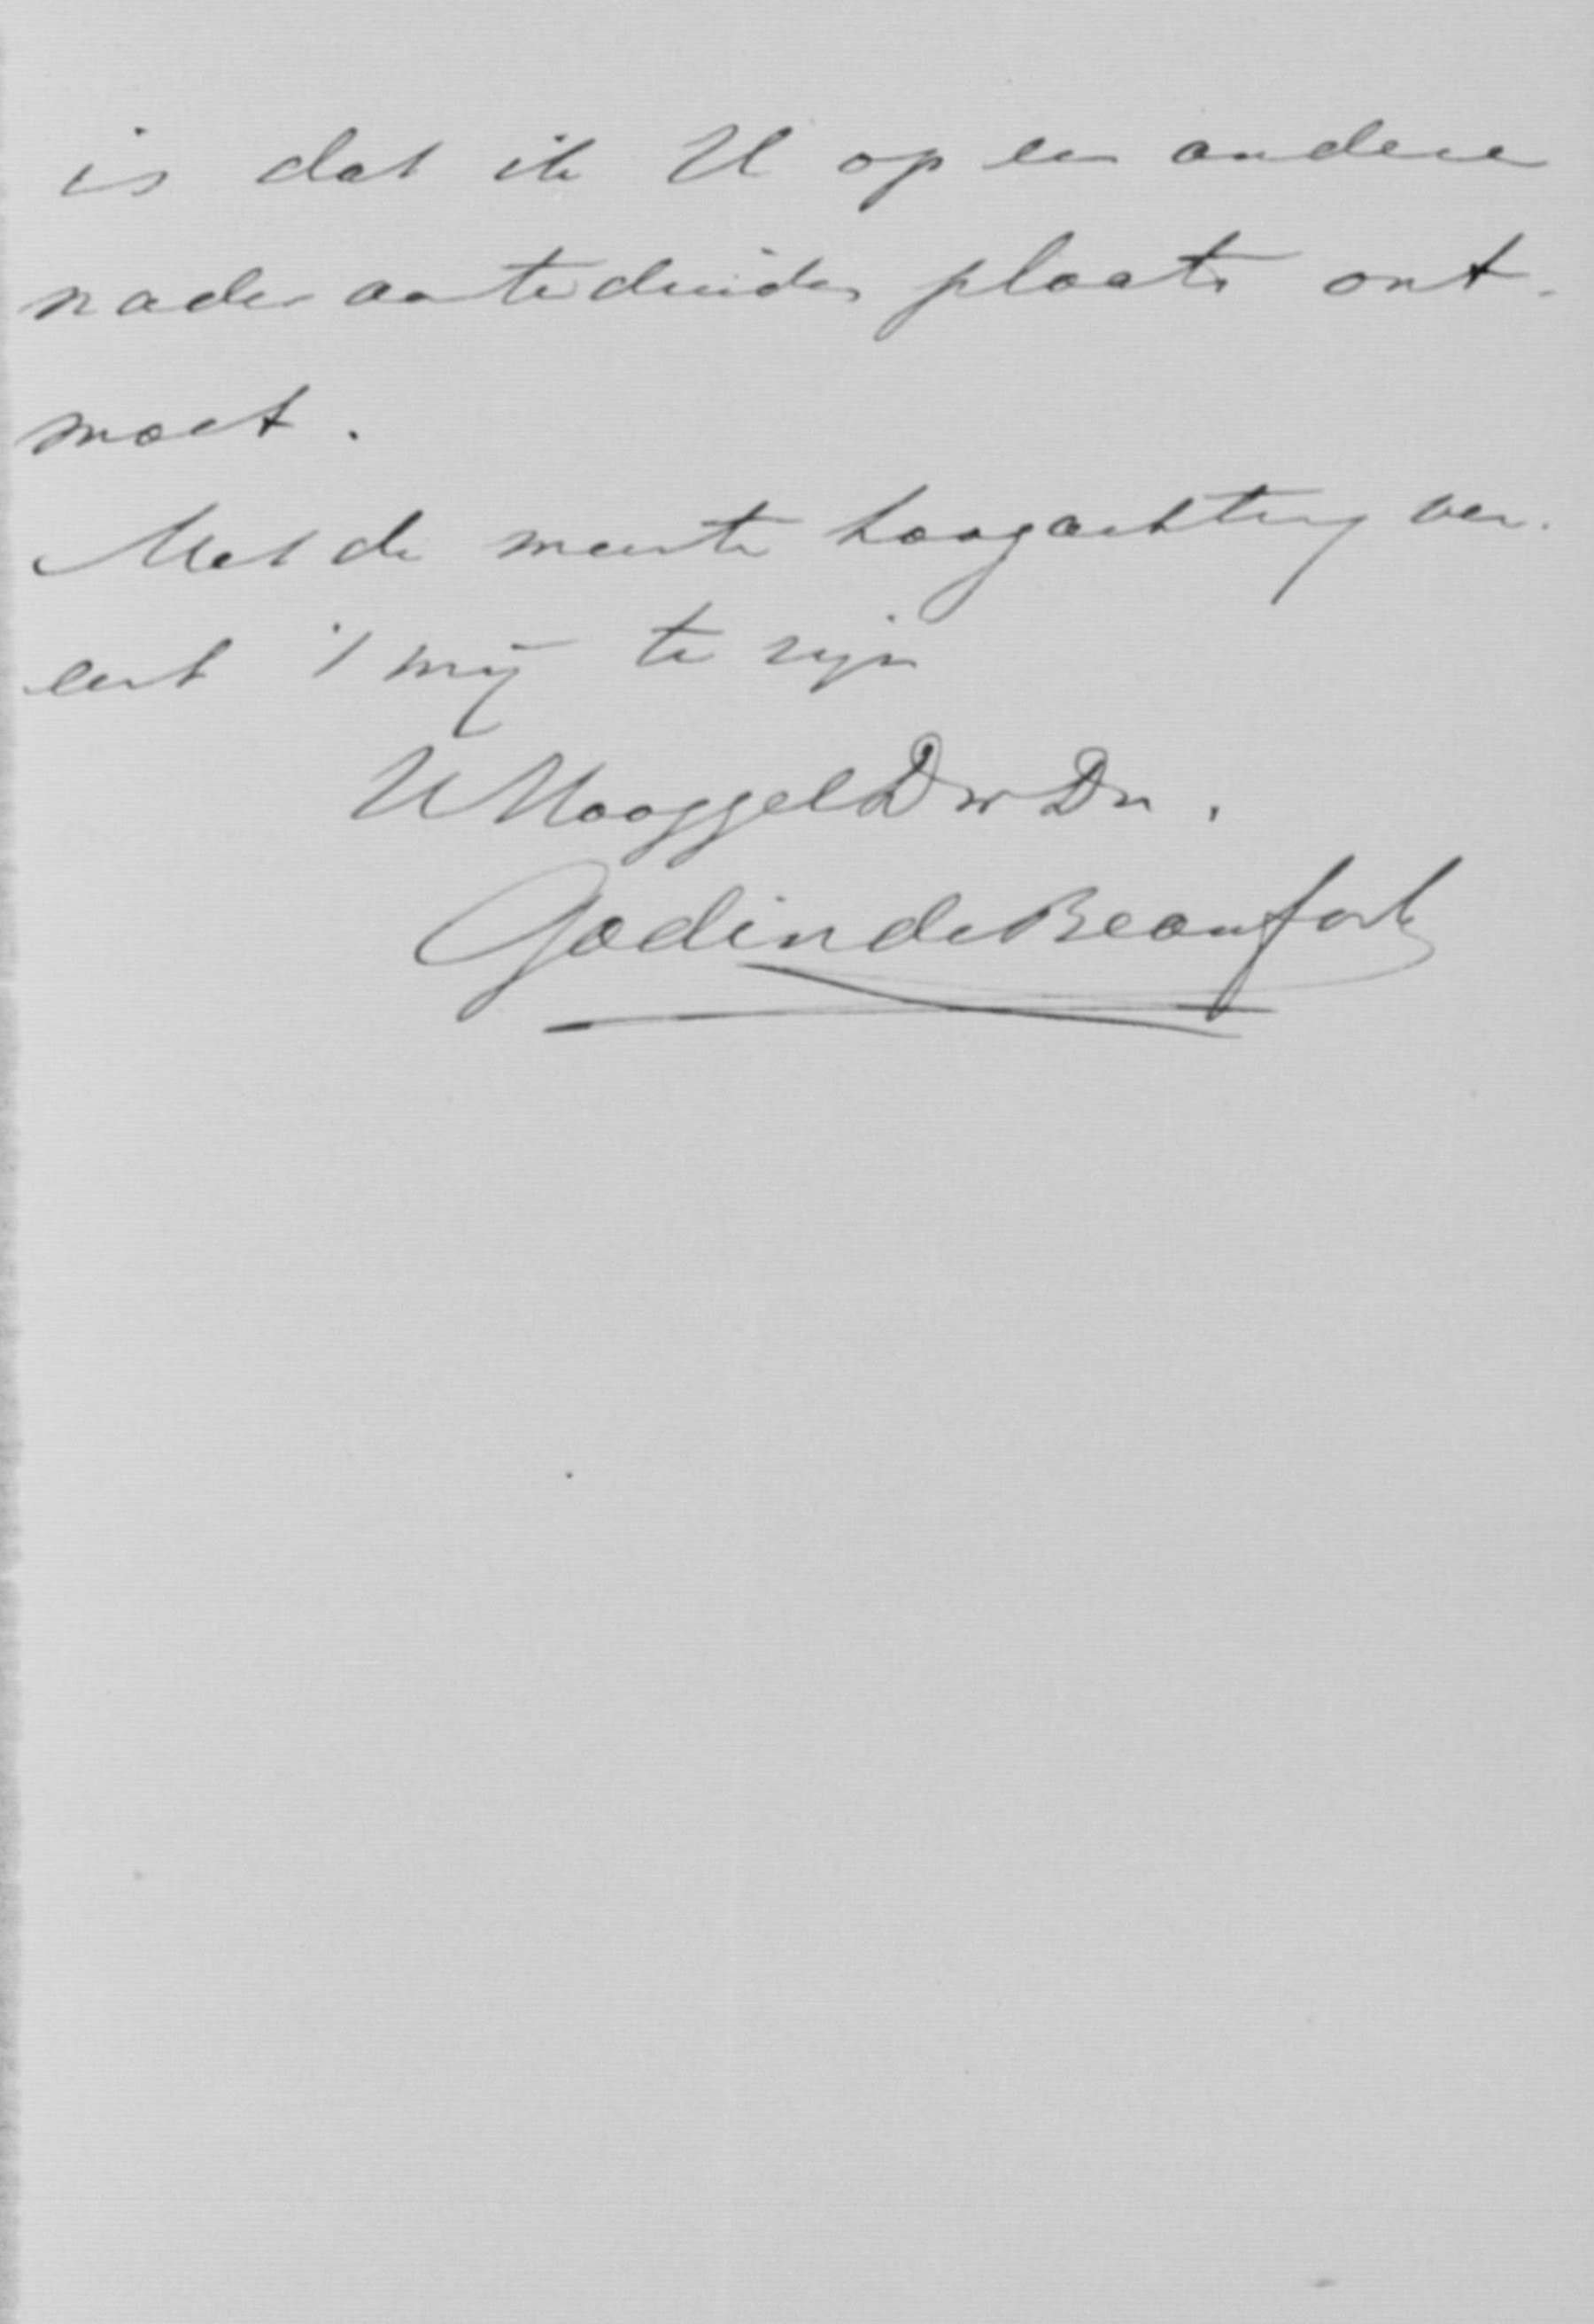 is dat ik U op een andere
nader aan te duiden plaats ont-
moet.
Met de meeste hoogachting ver-
eert 't mij te zijn
UHooggelDwDn.
Godin de Beaufort